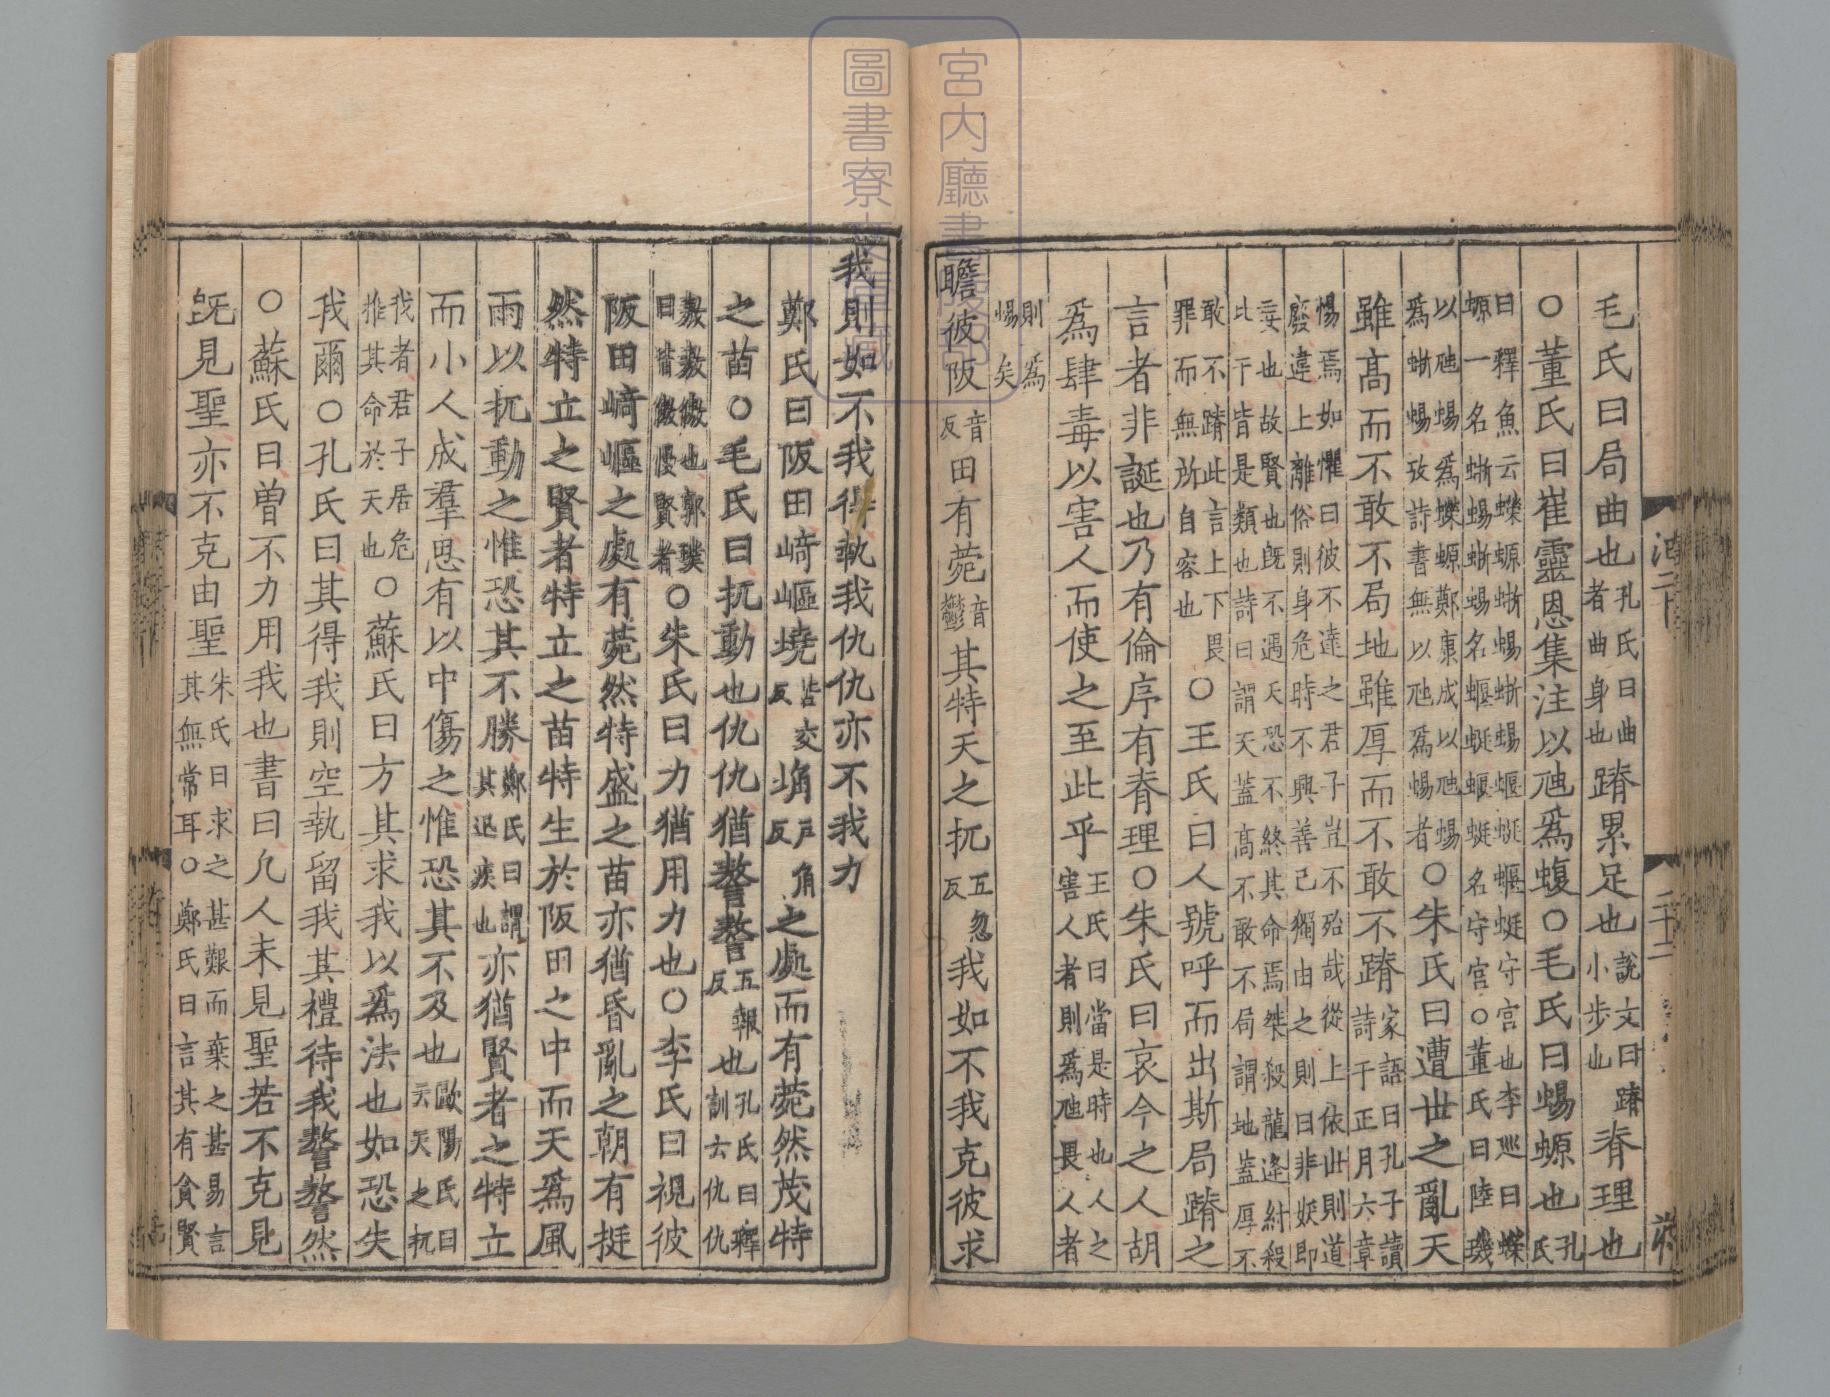 毛氏曰局曲也孔氏曰曲者曲身也蹐累足也說文曰蹐小步也脊理也
○董氏曰崔靈恩集注以虺為蝮○毛氏曰蜴螈也孔氏
曰釋魚云蠑螈蜥蜴蜥蜴蝘蜓蝘蜓守宮也李巡曰蠑螈一名蜥蜴蜥蜴名蝘蜓蝘蜓名守宮○董氏曰陸璣
以虺蜴為蠑螈鄭康成以虺蜴為蜥蜴攷詩書無以虺為蜴者○朱氏曰遭世之亂天
雖高而不敢不局地雖厚而不敢不蹐家語曰孔子讀詩于正月六章
惕焉如懼曰彼不達之君子豈不殆哉從上依世則道廢違上離俗則身危時不興善己獨由之則曰非妖即
妄也故賢也旣不遇天恐不終其命焉桀殺龍逄紂殺比干皆是類也詩曰謂天蓋高不敢不局謂地蓋厚不
敢不蹐此言上下畏罪而無所自容也○王氏曰人號呼而出斯局蹐之
言者非誕也乃有倫序有脊理○朱氏曰哀今之人胡
為肆毒以害人而使之至此乎王氏曰當是時也人之害人者則為虺畏人者
則為蜴矣
瞻彼阪音反田有菀音鬱其特天之扤五忽反我如不我克彼求
我則如不我得執我仇仇亦不我力
鄭氏曰阪田崎嶇墝苦交反埆戸角反之處而有菀然茂特
之苗○毛氏曰扤動也仇仇猶謷謷五報反也孔氏曰釋訓云仇仇
敖敖傲也郭璞曰皆傲慢賢者○朱氏曰力猶用力也○李氏曰視彼
阪田崎嶇之處有菀然特盛之苗亦猶昏亂之朝有挺
然特立之賢者特立之苗特生於阪田之中而天為風
雨以扤動之惟恐其不勝鄭氏曰謂其迅疾也亦猶賢者之特立
而小人成羣思有以中傷之惟恐其不及也歐陽氏曰云天之扤
我者君子居危推其命於天也○蘇氏曰方其求我以為法也如恐失
我爾○孔氏曰其得我則空執留我其禮待我謷謷然
○蘇氏曰曾不力用我也書曰凡人未見聖若不克見
旣見聖亦不克由聖朱氏曰求之甚艱而棄之甚易言其無常耳○鄭氏曰言其有貪賢
宮內廳書陵部
圖書寮文庫藏